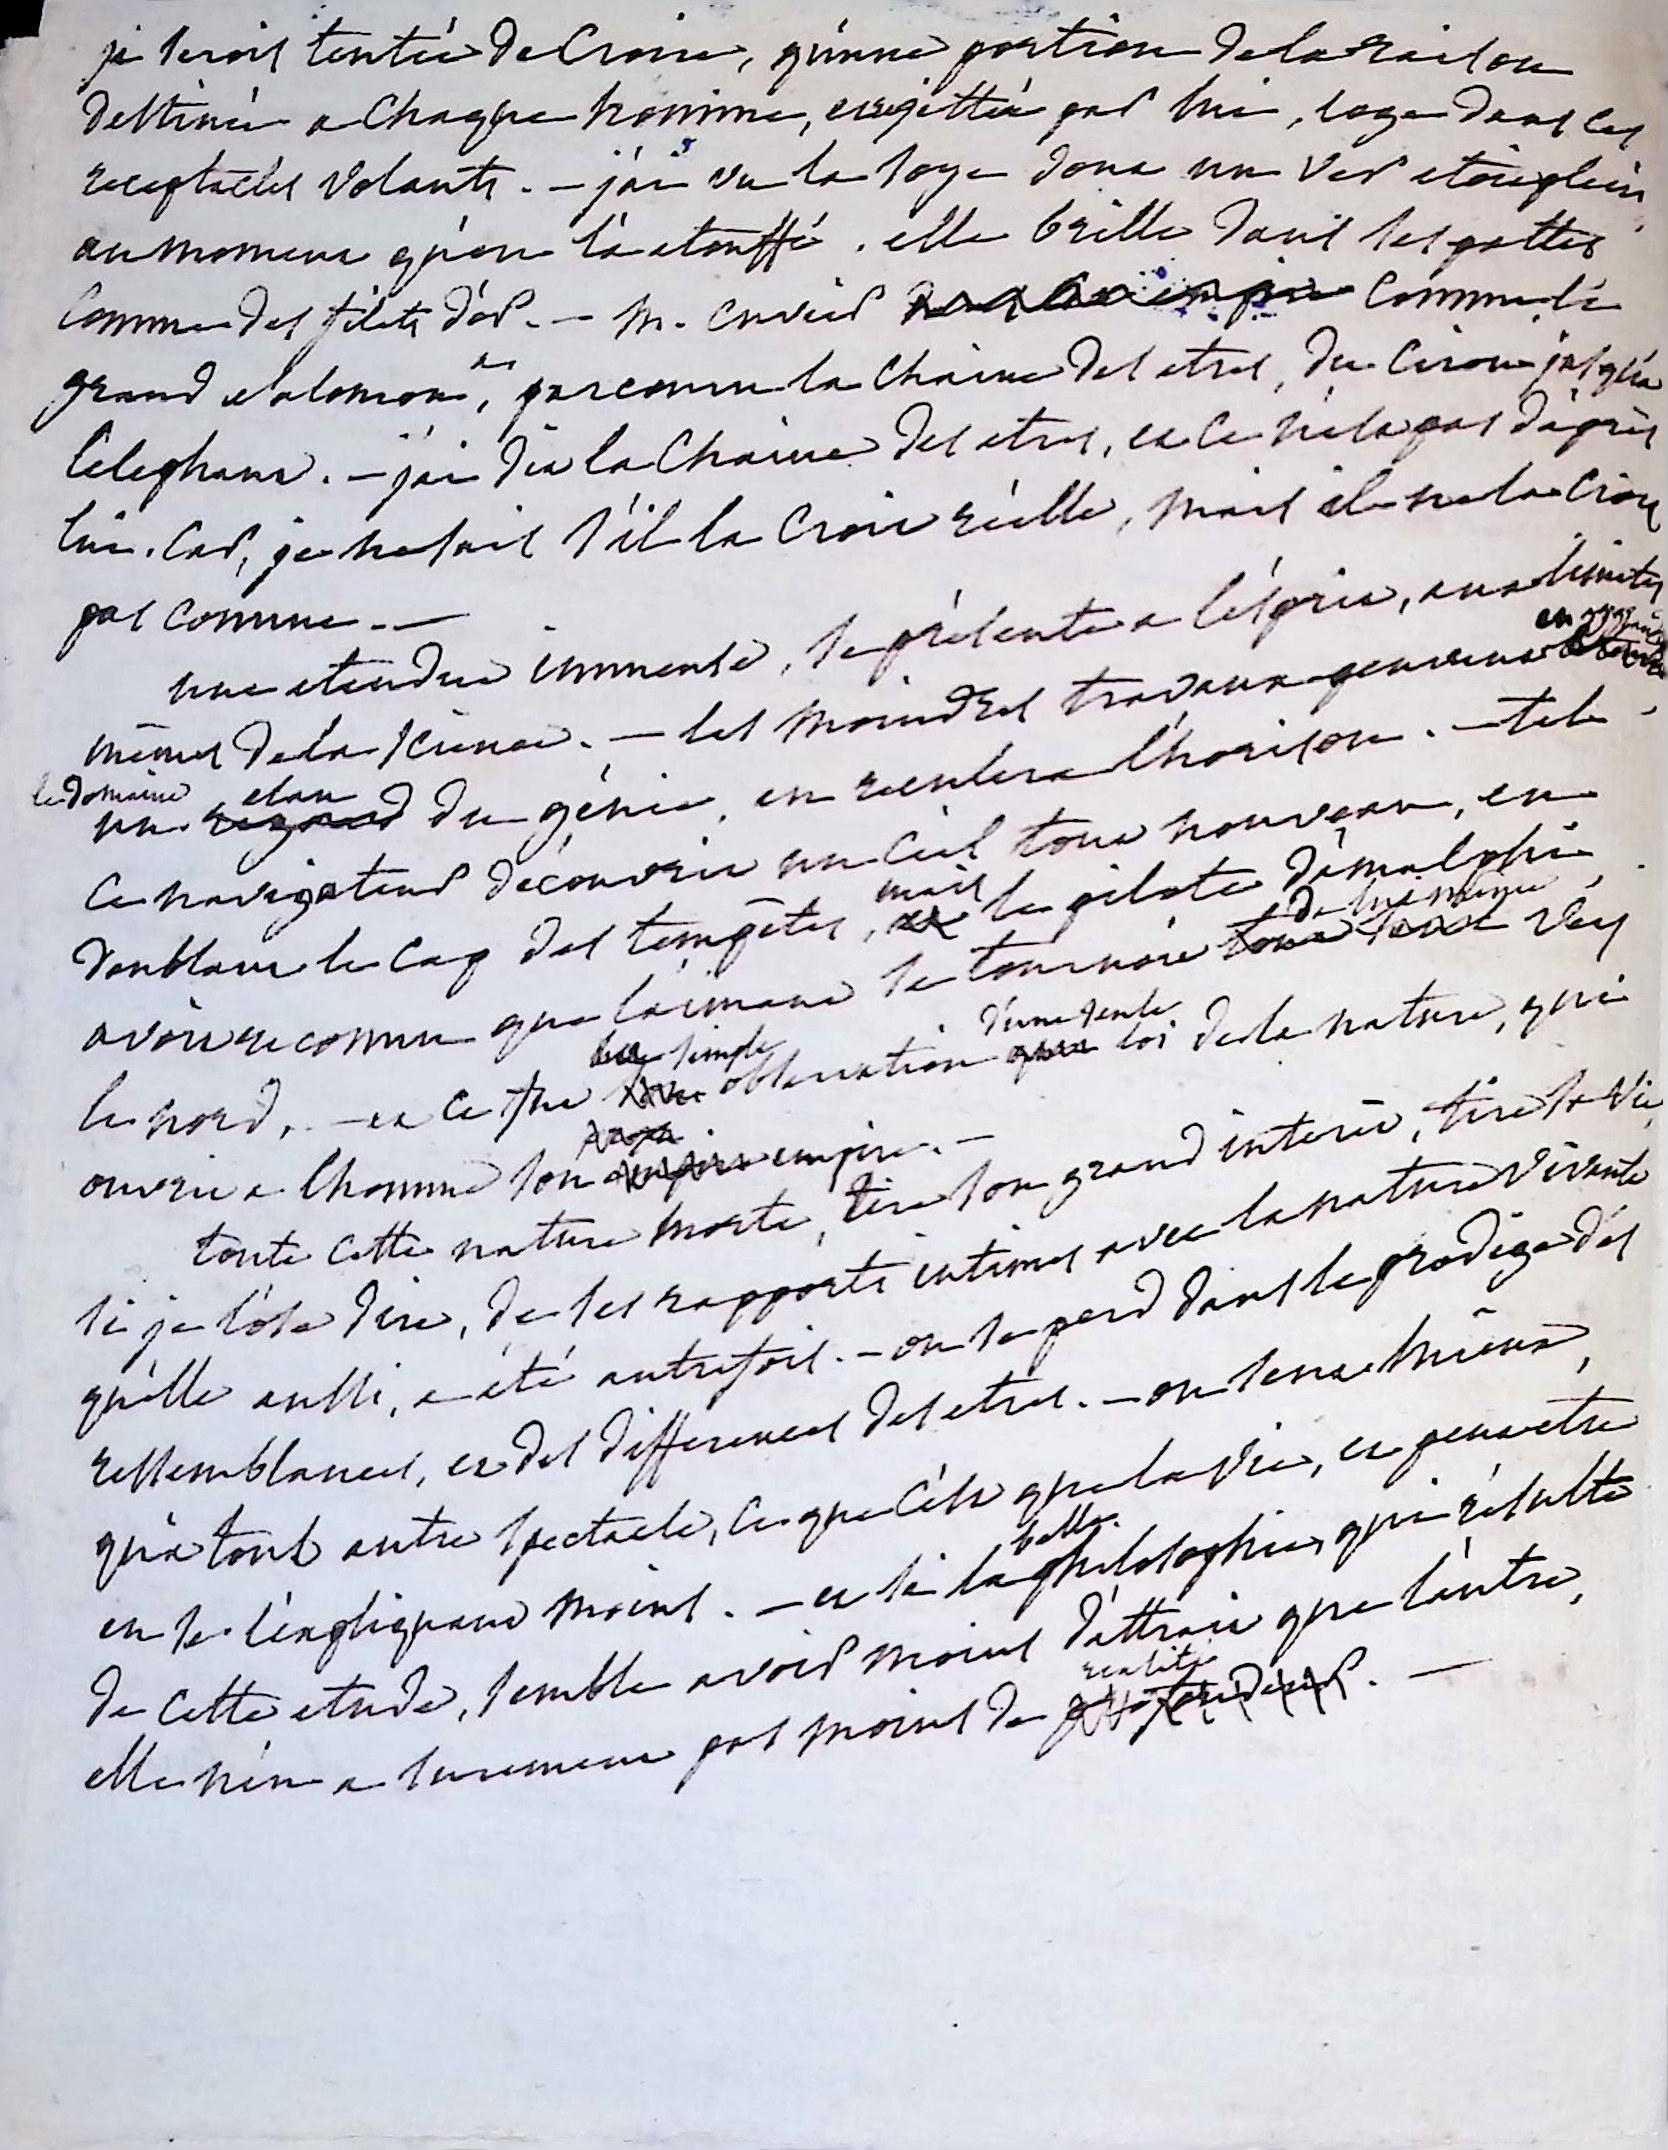 je serois tentée de Croire, qu'une portion de la raison
destinée a Chaque homme, et rejettée par lui, loge dans ces
receptacles volants. — j'ai vu la soye dont un Ver etoit plein,
au moment qu'on l'a etouffé. elle brille dans ses pattes
Comme des filets d'or. — M. Cuvier Comme le
grand Salomon, a parcouru la Chaine des etres, du Ciron jusqu'a
l'elephant. — j'ai dit la Chaine des etres, et ce n'est pas d'après
lui. Car, je ne sais s'il la Croit réelle, mais il ne la Croit
pas connue. —
une etendue immense, se présente a l'esprit, aux limites
mêmes de la science. — les moindres travaux peuvent en aggrandir
le domaine
un elan du génie, en recule l'horison. — tel
Ce navigateur découvrit un Ciel tout nouveau, en
doublant le Cap des tempêtes, mais le pilote d'amalphi
avoit reconnu que l'aimant se tournoit de lui même vers
le nord, — et ce fut la simple observation d'une seule loi de la nature, qui
ouvrit a l'homme son empire. —
toute cette nature morte, tire son grand interêt, tire sa vie,
si je l'ose dire, de ses rapports intimes avec la nature vivante
qu'elle aussi, a été autrefois. — on se perd dans le prodige des
ressemblances, et des differences des etres. — on sent mieux,
qu'a tout autre spectacle, ce que C'est que la vie, et peut etre
en se l'expliquant moins. — et si la belle philosophie, qui résulte
de cette etude, semble avoir moins d'attrait que l'autre,
elle n'en a surement pas moins de realité. —